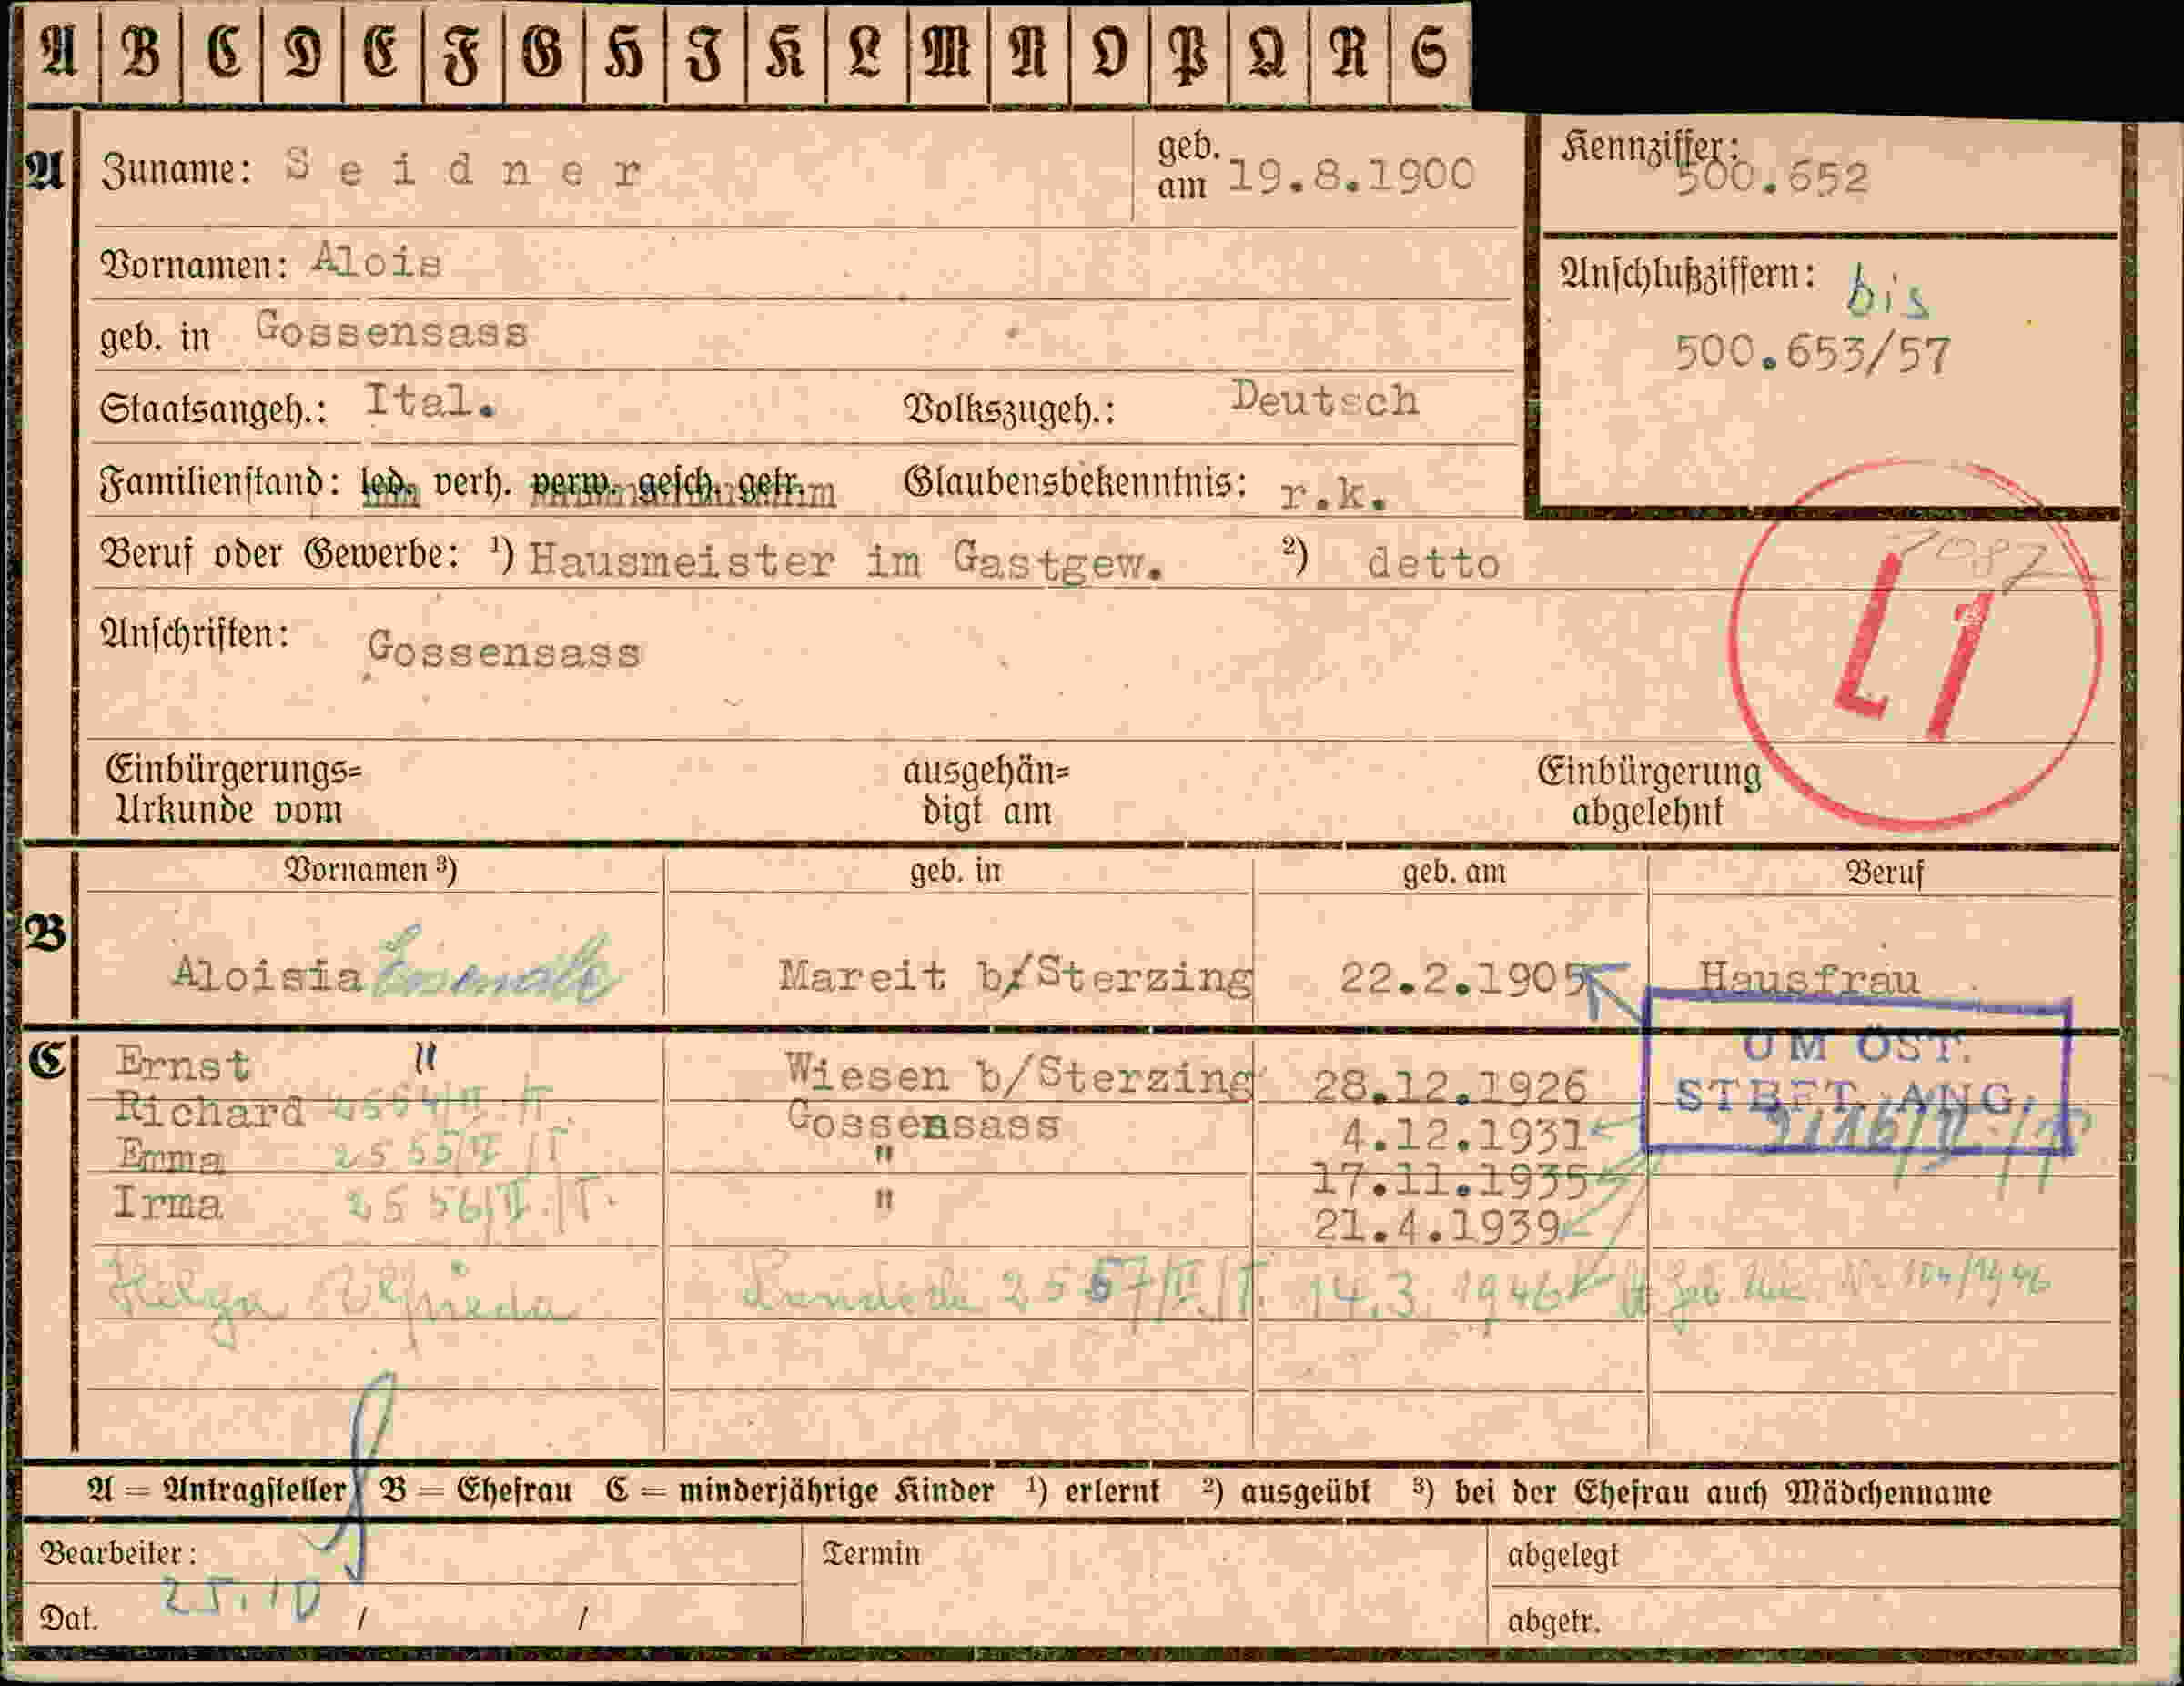 A B C D E F G H J K L M N O P Q R S
A Zuname: Seidner geb. am 19.8.1900 Kennziffer: 500.652
Vornamen: Alois
Anschlußziffern: bis
geb. in Gossensass
500.653/57
Staatsangeh.: Ital. Volkszugeh.: Deutsch
Familienstand: led. verh. verw. gesch. getr. Glaubensbekenntnis: r.k.
Beruf oder Gewerbe: ¹) Hausmeister im Gastgew. ²) detto
7087
L1
Anschriften: Gossensass
Einbürgerungs= ausgehän= Einbürgerung
Urkunde vom digt am abgelehnt
Vornamen ³) geb. in geb. am Beruf
B Aloisia Mareit b/Sterzing 22.2.1905 Hausfrau
UM ÖST.
STBFT. ANG.
C Ernst " Wiesen b/Sterzing 28.12.1926
Richard 2554/II./T. Gossensass 4.12.1931
Emma 2555/II/T " 17.11.1935
Irma 2556/II./T. " 21.4.1939
Helga 2557/II./T. 14.3.1946 Geb. Urk. Nr. 104/1946
A = Antragsteller B = Ehefrau C = minderjährige Kinder ¹) erlernt ²) ausgeübt ³) bei der Ehefrau auch Mädchenname
Bearbeiter: Termin abgelegt
25.10
Dat. / / abgetr.